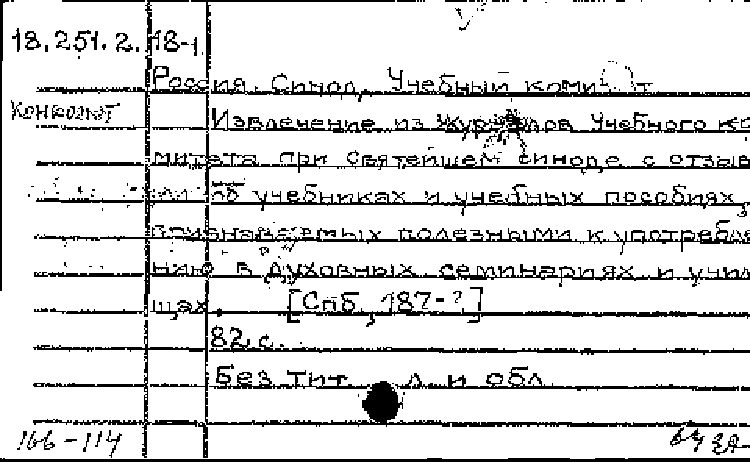 18.251.2.18-1
Россия. Синод. Учебный комитет
Конволют
Извлечение из журналов Учебного ко
митета при святейшем синоде с отзыв
об учебниках и учебных пособиях,
признаваемых полезными к употребле
нию в духовных семинариях и учили
щах. [Спб, 187-?]
82 с.
Без тит. л. и обл
166-114